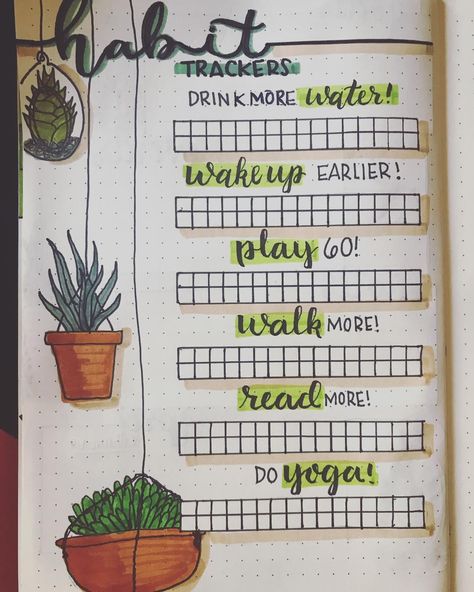 habit
TRACKERS
DRINK MORE water!
wake up EARLIER!
play 60!
walk MORE!
read MORE!
DO yoga!